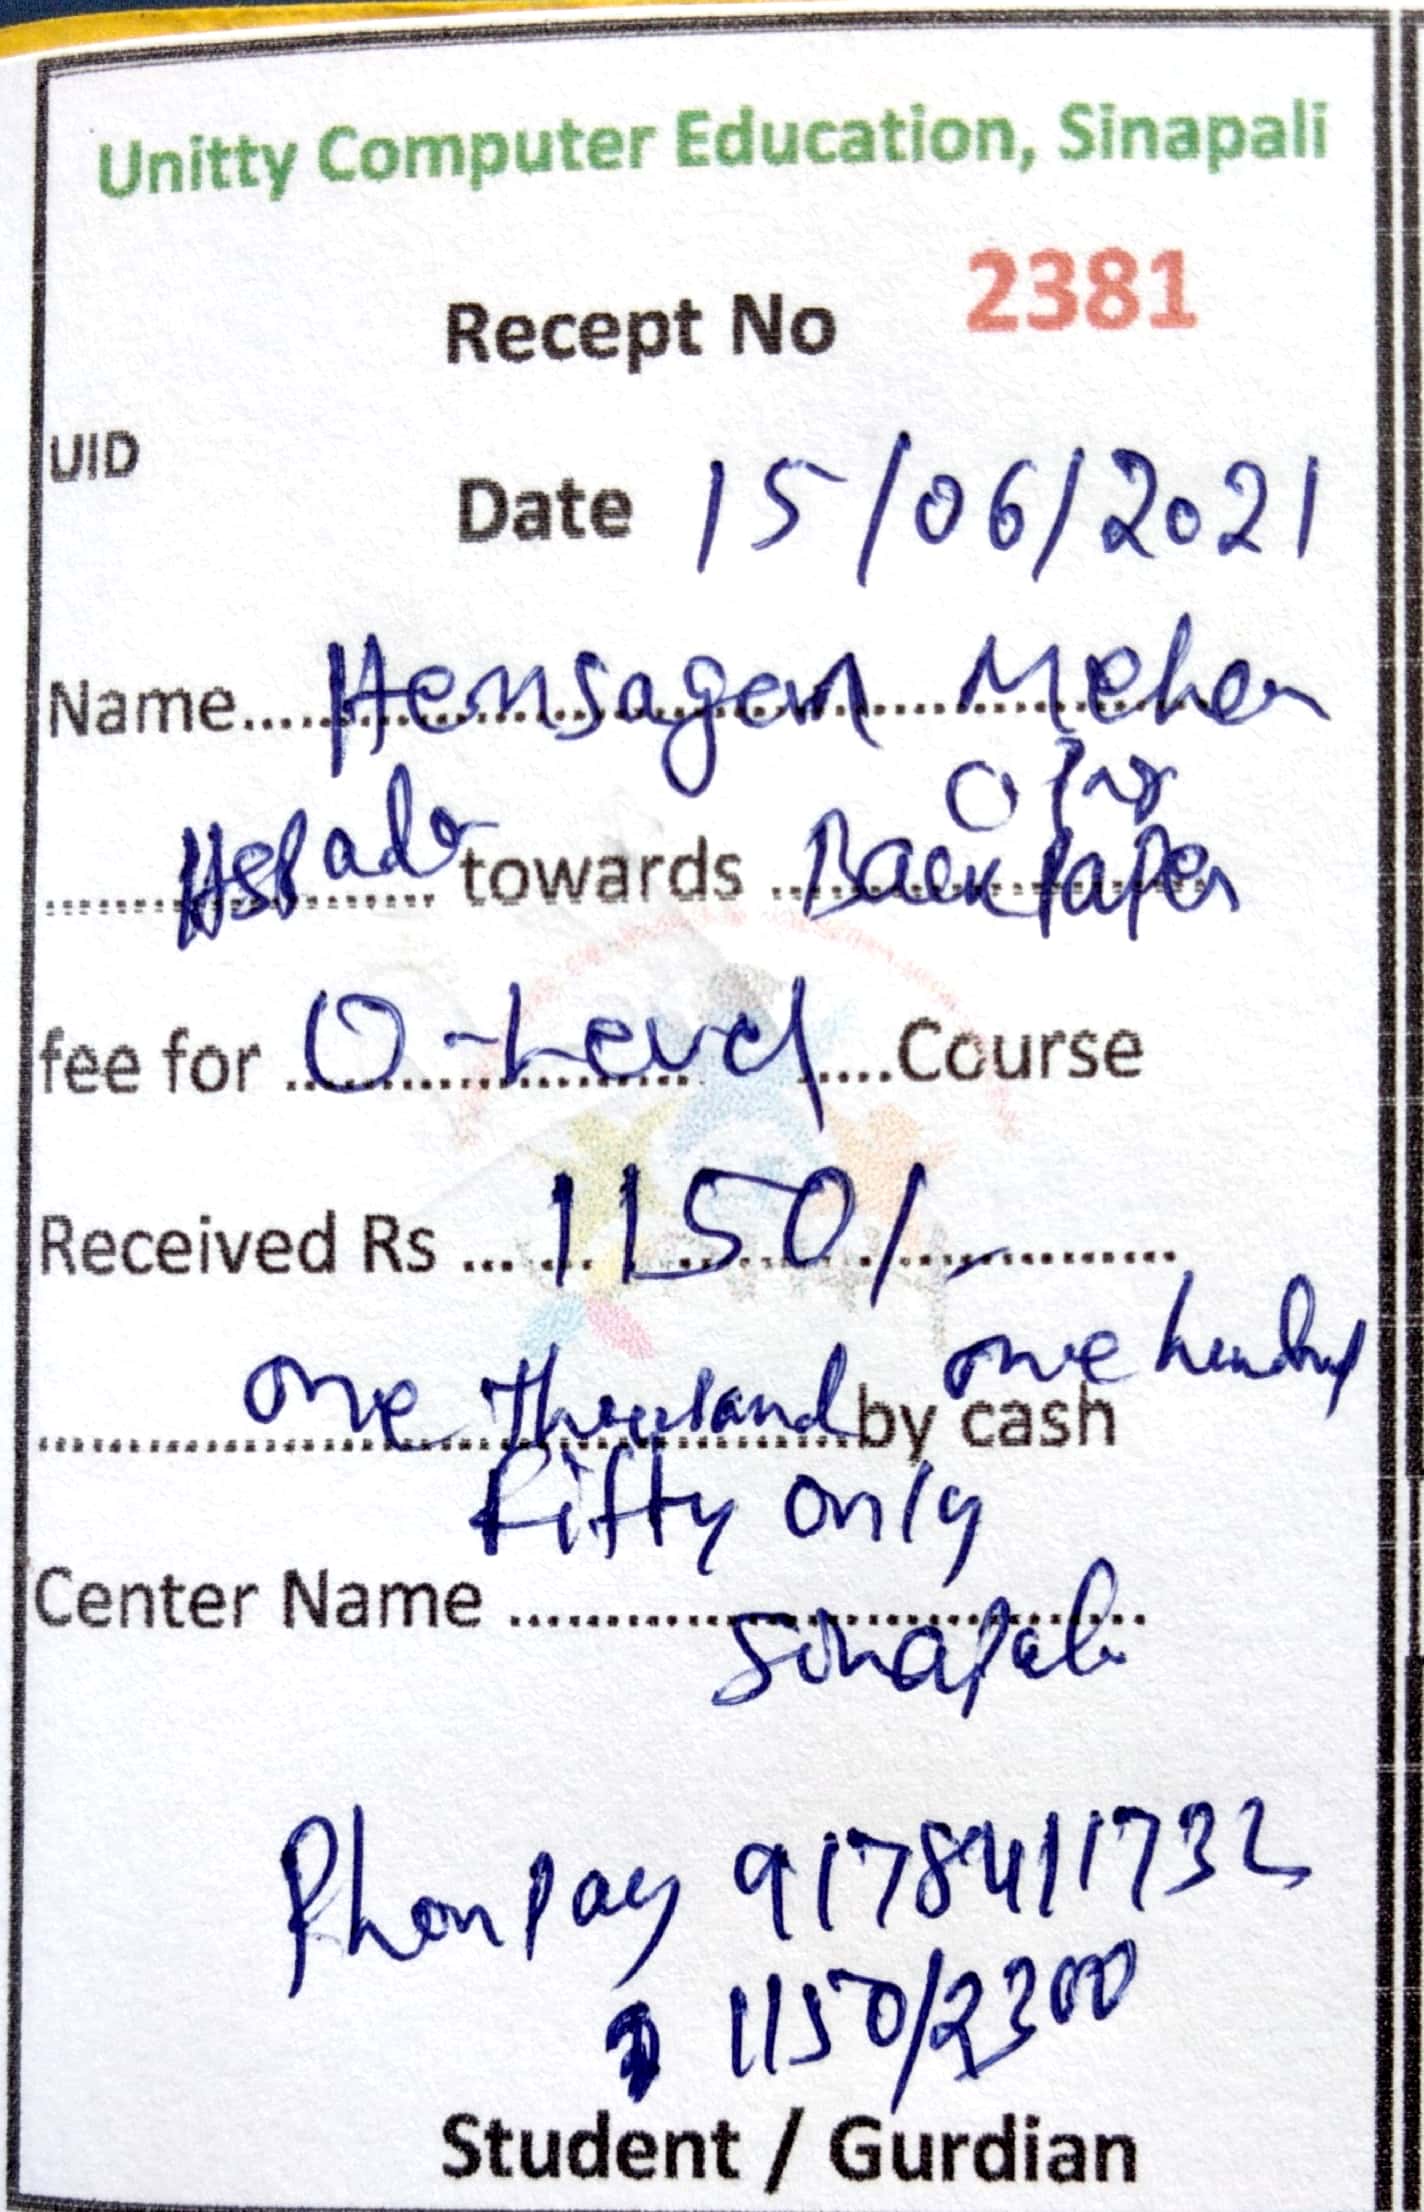 Unitty Computer Education, Sinapali
Recept No 2381
UID
Date 15/06/2021
Name.... Hemsagar Meher
towards Back Paper
fee for O-Level ....Course
Received Rs ... 1150/-
one thousand by cash one hundred
Fifty only
Center Name ........ Sinapali
Phonpay 9178411732
1150/2300
Student / Gurdian